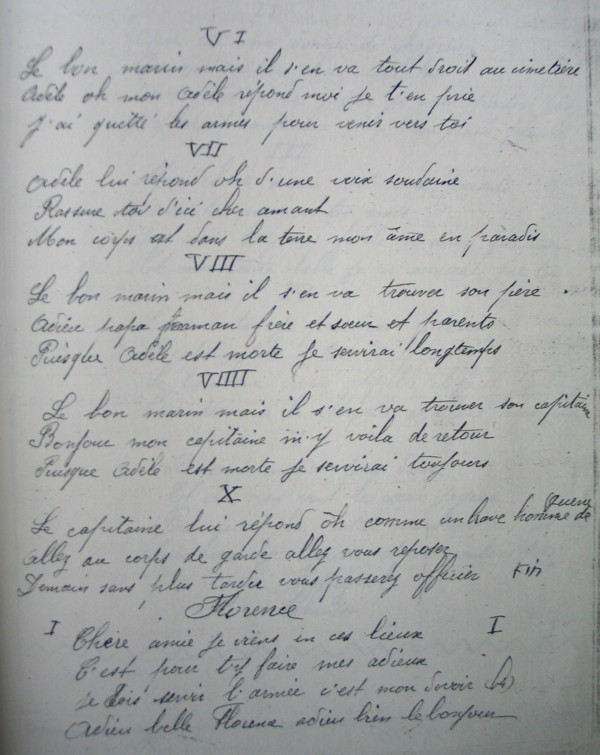 VI
Le bon marin mais il s'en va tout droit au cimetière
Adèle oh mon Adèle répond moi je t'en prie
J'ai quitté les armes pour venir vers toi
VII
Adèle lui répond oh d'une voix soudaine
Rassure toi d'ici cher amant
Mon corps est dans la terre mon âme en paradis
VIII
Le bon marin mais il s'en va trouver son père.
Adieu papa maman frère et sœur et parents
Puisque Adèle est morte je servirai longtemps
VIIII
Le bon marin mais il s'en va trouver son capitaine
Bonjour mon capitaine m'y voila de retour
Puisque Adèle est morte je servirai toujours
X
Le capitaine lui répond oh comme un brave homme de guerre
Allez au corps de garde allez vous reposez
Demain sans plus tarder vous passerez officier Fin
Florence
I Chère amie je viens in ces lieux I
C'est pour t'y faire mes adieux
Je dois servir l'armée c'est mon devoir (bis)
Adieu belle Florence adieu bien le bonjour